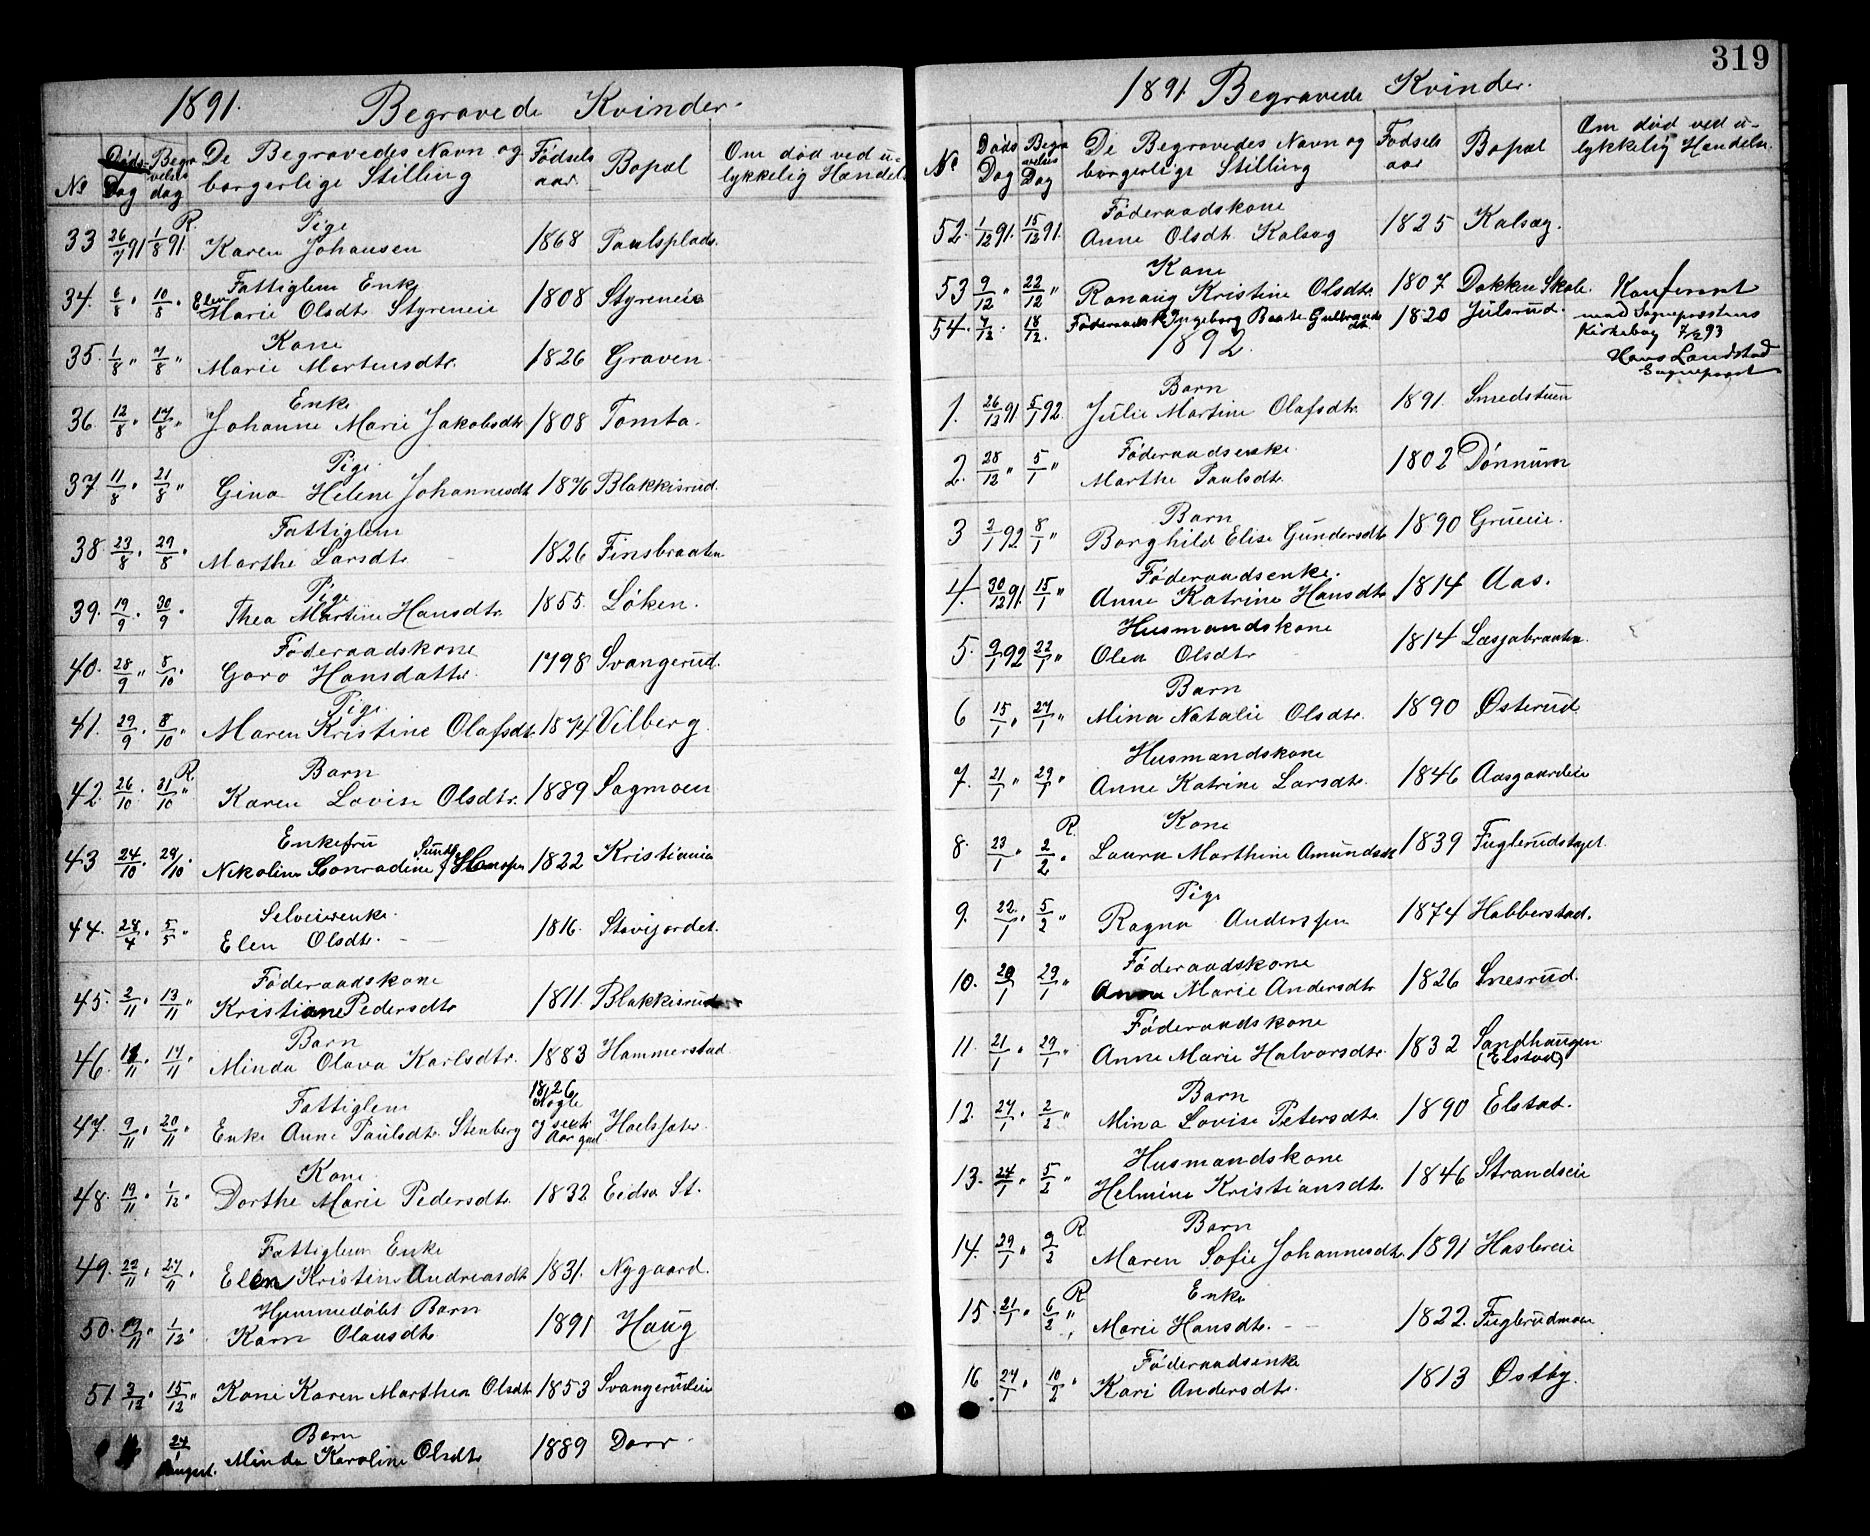 1891. Begravede Kvinder.
No Døds Dag Begravelses dag De Begravedes Navn og borgerlige Stilling Fødsels aar Bopæl Om død ved ulykkelig Hændelse
R. Pige
33 26/7 91 1/8 91. Karen Johansen 1868 Paulsplads.
Fattiglem Enke
34. 6/8 " 10/8 " Elen Marie Olsdtr Styreneie 1808 Styreneie
Kone
35. 1/8 " 7/8 " Marie Mortensdtr. 1826 Graven.
Enke
36 12/8 " 17/8 " Johanne Marie Jakobsdtr 1808 Tomta.
Pige
37 11/8 " 21/8 " Gina Helene Johannesdt 1876 Blakkisrud.
Fattiglem
38 23/8 " 29/8 " Marthe Larsdtr 1826 Finsbraaten
Pige
39. 19/9 " 30/9 " Thea Martine Hansdtr. 1855. Løken.
Føderaadskone
40. 28/9 " 8/10 " Goro Hansdatter. 1798 Svangerud.
Pige
41. 29/9 " 8/10 " Maren Kristine Olafsdtr 1874 Vilberg
R. Barn
42. 26/10 " 31/10 " Karen Lovise Olsdtr. 1889 Sagmoen
Enkefru
43 24/10 " 29/10 " Nikoline Conradine f 1822 Kristiania
Selveierenke.
44. 28/4 " 5/5 " Elen Olsdtr. 1816. Stavijordet.
Føderaadskone
45. 2/11 " 13/11 " Kristiane Pedersdtr 1811. Blakkisrud
Barn
46. 11/11 " 17/11 " Minda Olava Karlsdtr. 1883 Hammerstad
Fattiglem 1826 Nogle
47. 9/11 " 20/11 " Enke Anne Paulsdtr Stenberg og sexti Aar gml
Kone
48. 19/11 " 1/12 " Dorthe Marie Pedersdtr 1832 Eidsv. St.
Fattiglem Enke
49. 22/11 " 27/11 " Elen Kristine Andreasdt 1831. Nygaard.
Hjemmedøbt Barn
50. 19/11 " 1/12 " Karn Olausdtr 1891 Haug
51 3/12 " 15/12 " Kone Karen Marthea Olsdtr 1853 Svangerudeie
Barn
24/1 Minda Karoline Olsdtr 1889 Dorr
319
1891. Begravede Kvinder.
No Døds Dag Begravelses Dag De Begravedes Navn og borgerlige Stilling Fødsels aar Bopæl Om død ved ulykkelig Hændelse
Føderaadskone
52. 1/12 91. 15/12 91. Anne Olsdtr Kalsæg 1825 Kalsæg.
Kone
53 9/12 " 22/12 " Ronaug Kristine Olsdtr. 1807 Dokken Skole. Konferert
54. 7/12 18/12. Føderaadsk Ingeborg Beate Gulbrandsdt. 1820 Julsrud. med Sogneprestens
Kirkebog 7/2 93
Hans Landstad
Sogneprest
1892.
Barn
1. 26/12 91 5/1 92. Julie Martine Olafsdtr 1891. Smedstuen
Føderaadsenke.
2. 28/12 " 5/1 " Marthe Paulsdtr. 1802 Dønnum
Barn
3 2/1 92 8/1 " Borghild Elise Gundersdtr 1890 Grueeie.
Føderaadsenke.
4. 30/12 91. 15/1 " Anne Katrine Hansdtr 1814 Aas.
Husmandskone
5. 9/1 92 22/1 " Olea Olsdtr 1814 Læsjabraaten.
Barn
6 15/1 " 27/1 " Mina Natalie Olsdtr. 1890 Østerud.
Husmandskone
7. 21/1 " 29/1 " Anne Katrine Larsdtr. 1846 Aasgaardeie
R. Kone
8. 23/1 " 2/2 " Laura Marthine Amundsdt 1839 Fuglerudstajet.
Pige
9. 22/1 " 5/2 " Ragna Anderssen 1874 Habberstad.
Føderaadskone
10. 20/1 29/1 " Anne Marie Andersdtr 1826 Snesrud.
Føderaadskone
11. 21/1 " 29/1 " Anne Marie Halvorsdtr. 1832 Sandhaugen (Elstad)
Barn
12. 27/1 " 2/2 " Mina Lovise Petersdtr. 1890 Elstad.
Husmandskone
13. 24/1 " 5/2 " Helmine Kristiansdtr. 1846 Strandseie
R Barn
14. 29/1 " 9/2 Maren Sofie Johannesdtr. 1891 Haslereie
R Enke
15 21/1 " 6/2 " Marie Hansdtr. 1822. Fuglerudmoen
Føderaadsenke
16 27/1 " 10/2 " Kari Andersdtr. 1813 Østby.